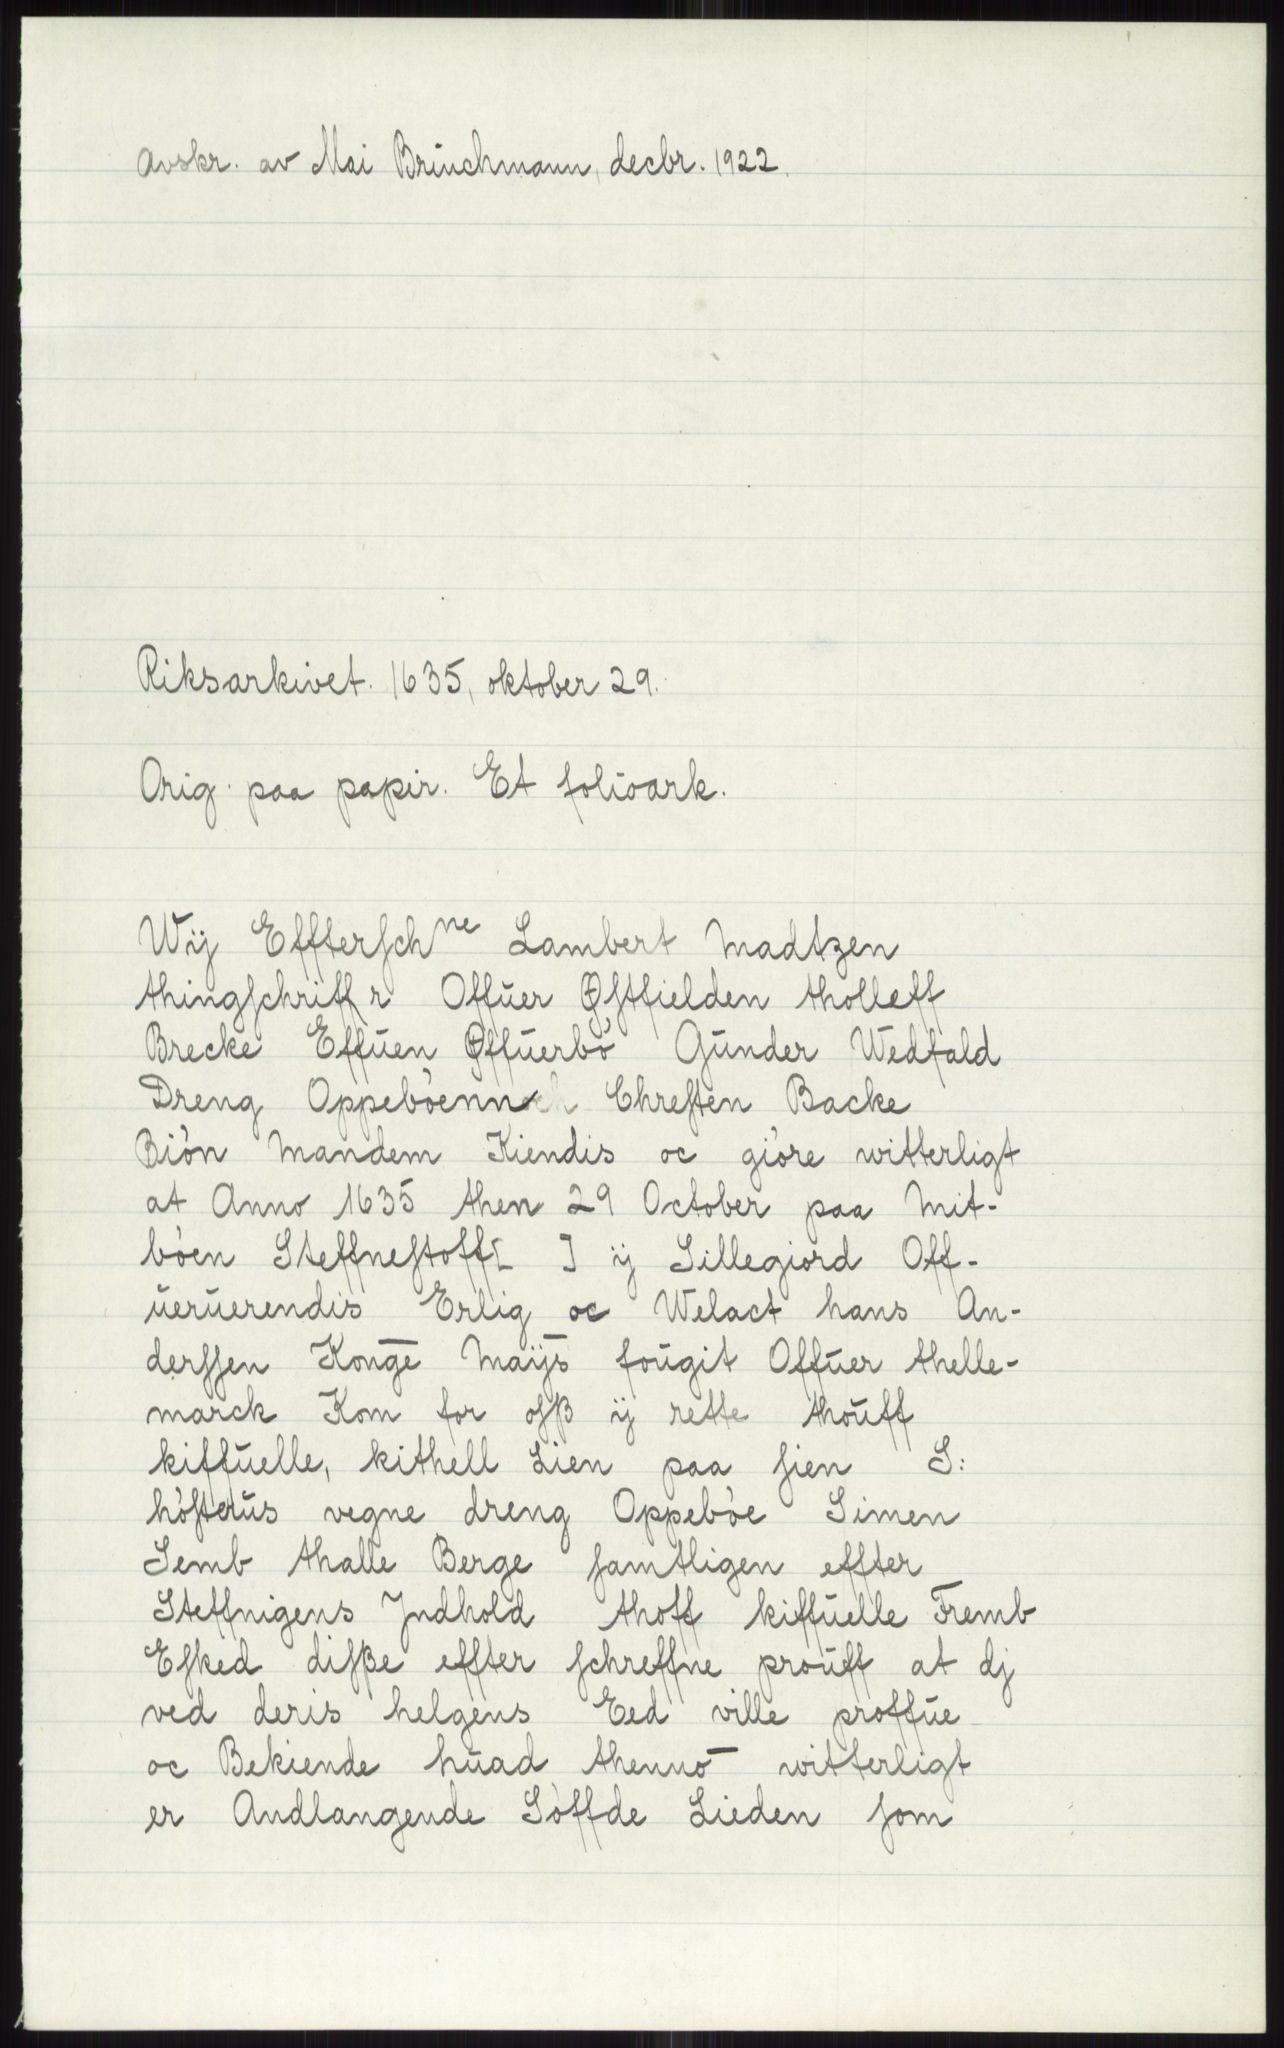 Avskr. av Mai Brüchmann, decbr. 1922.
Riksarkivet. 1635, oktober 29.
Orig. paa papir. Et folioark.
Wij Effterschne Lambert Madtzen
thingschriffr Offuer Østfielden tholleff
Brecke Effuen Øffuerbó Gunder Wedfald
Dreng Oppebóenn Chresten Backe
Bión Mandem Kiendis oc gióre witterligt
at Anno 1635 then 29 October paa Mit-
bóen Steffnestoff[ ] ij Sillegiord Off-
ueruerendis Erlig oc Welact hans An-
derssen Konge Maijs fougit Offuer thelle-
marck Kom for osß ij rette thouff
kiffuelle, kithell Lien paa sien S:
hósterus vegne dreng Oppebóe Simen
Semb thalle Berge samtligen effter
Steffnigens Jndhold thoff kiffuelle Fremb
Esked disße effter schreffne prouff at dj
ved deris helgens Eed ville proffue
oc Bekiende huad thennō witterligt
er Andlangende Sóffde Lieden som